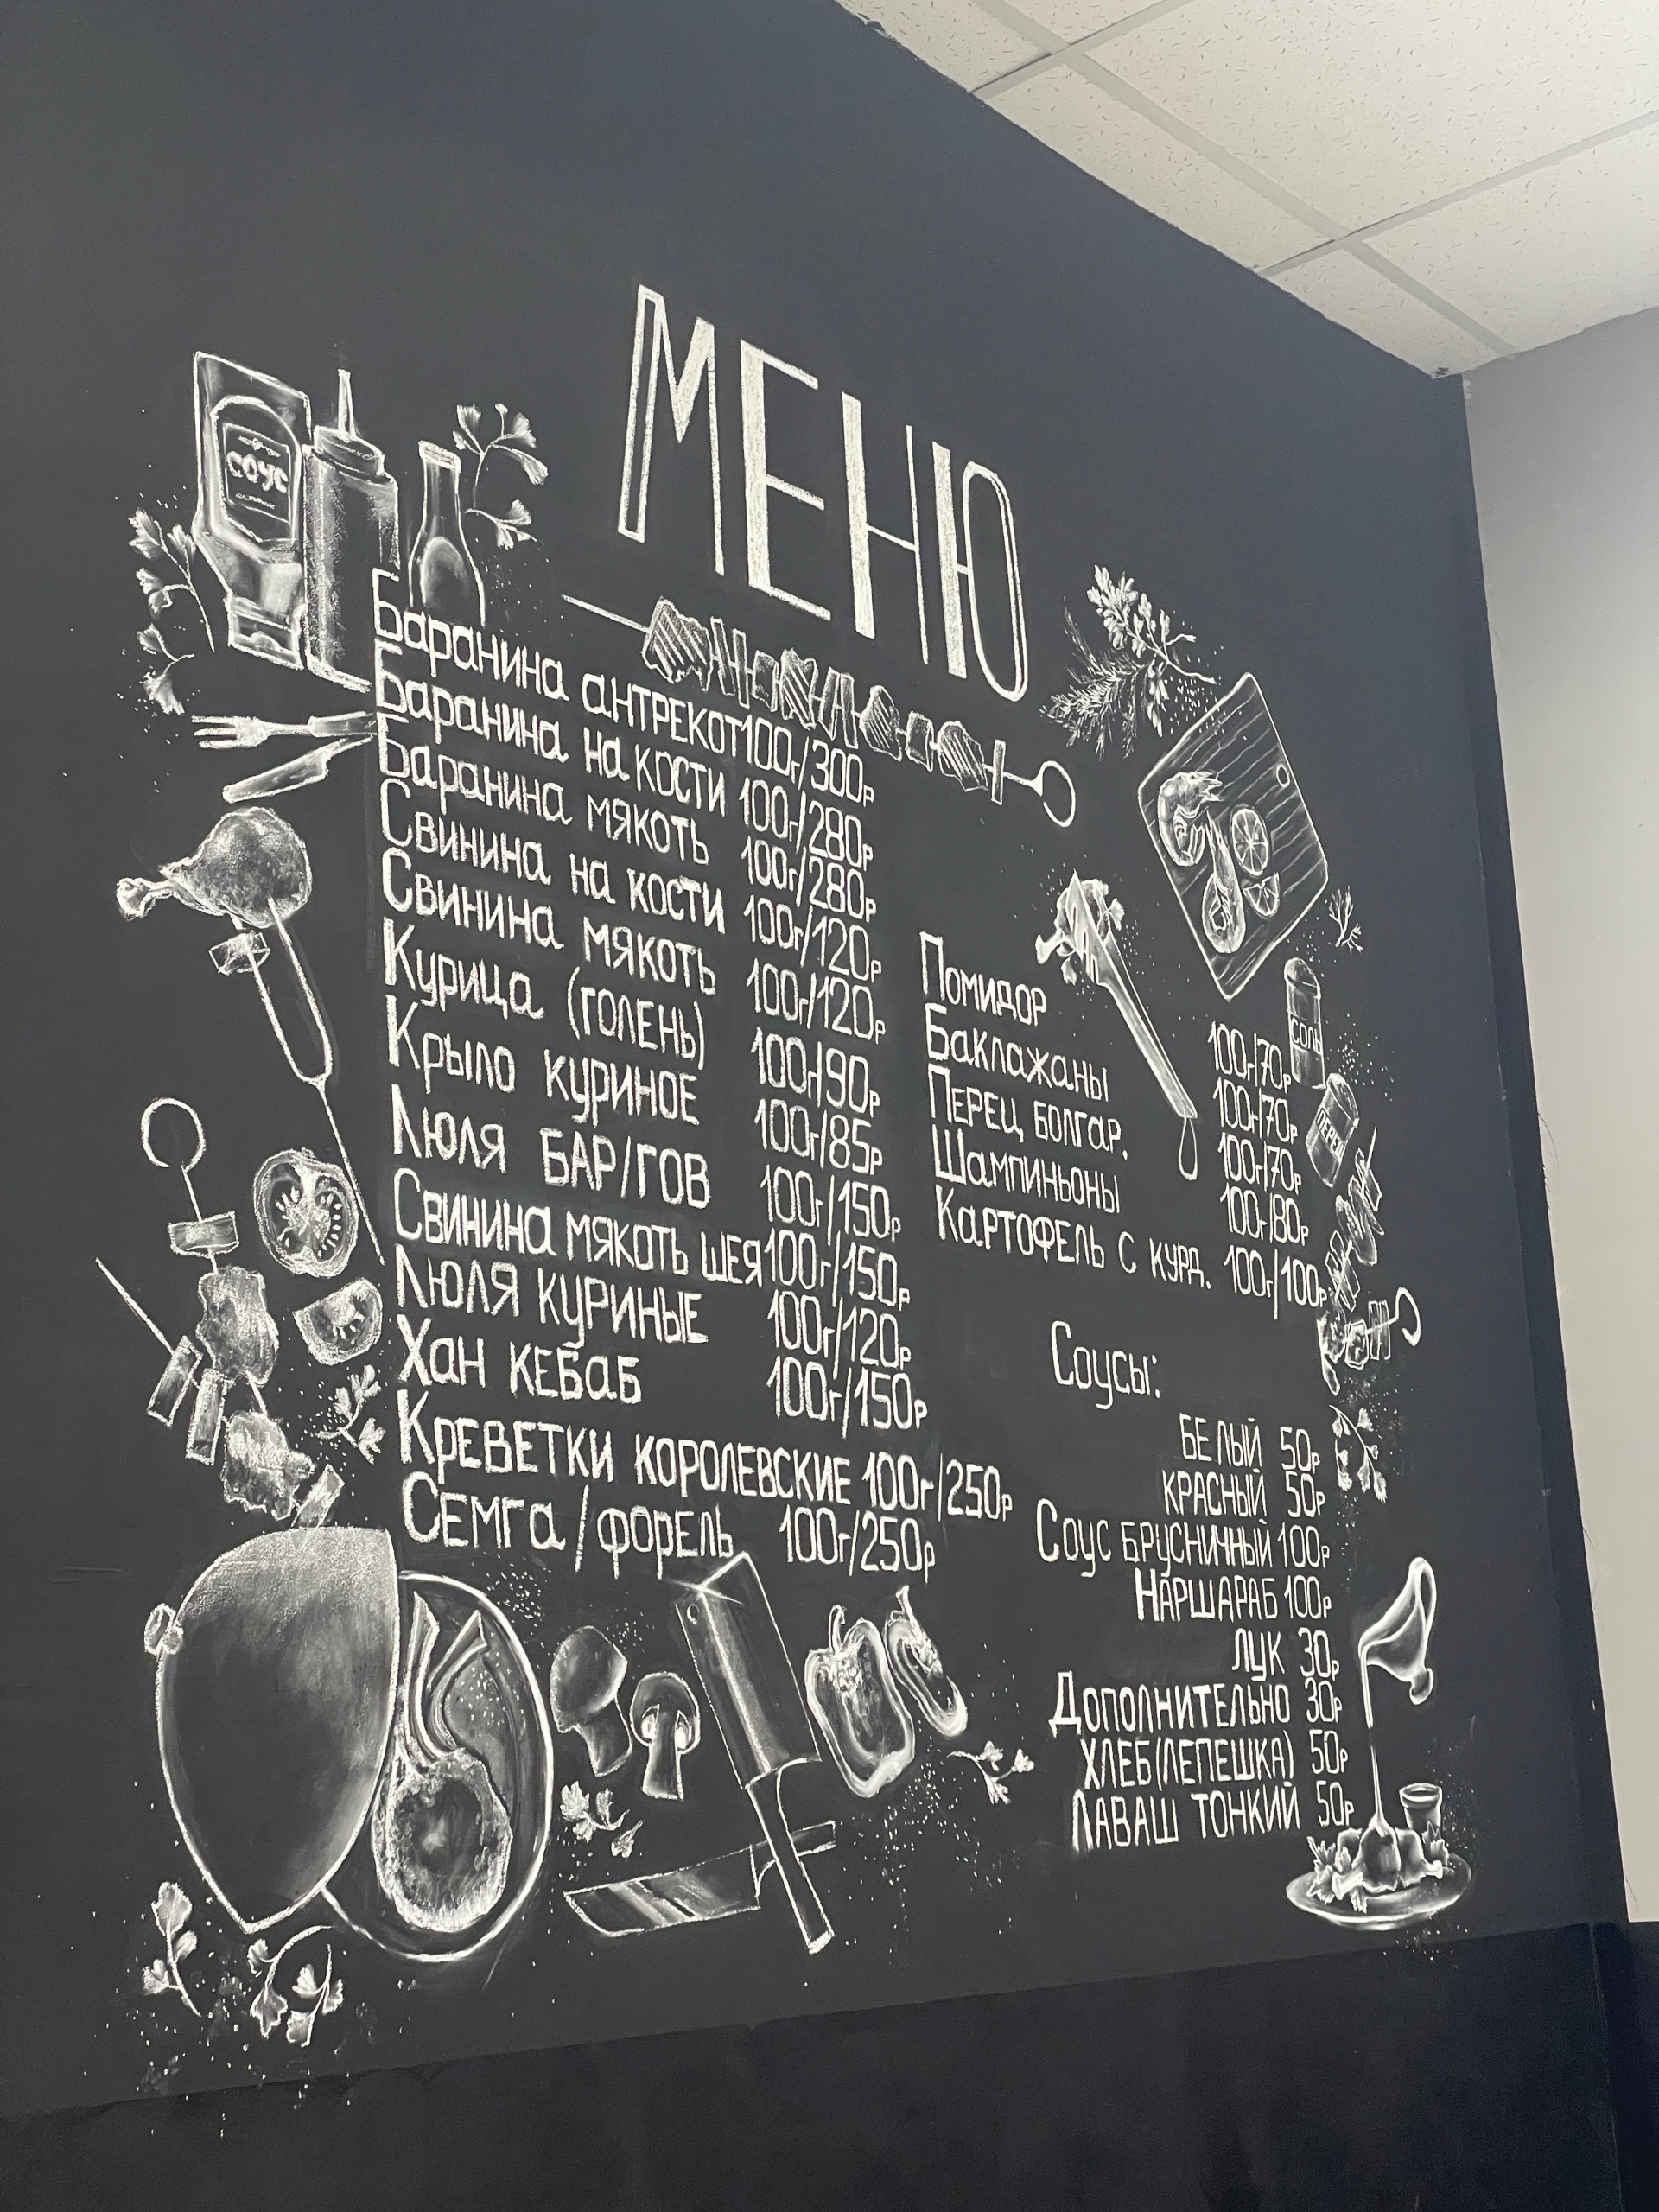 МЕНЮ
СОУС
Баранина антрекот 100г/300р
Баранина на кости 100г/280р
Баранина мякоть 100г/280р
Свинина на кости 100г/120р
Свинина мякоть 100г/120р
Курица (голень) 100г/90р
Крыло куриное 100г/85р
Люля БАР/ГОВ 100г/150р
Свинина мякоть шея 100г/150р
Люля куриные 100г/120р
Хан кебаб 100г/150р
Креветки королевские 100г/250р
Семга/форель 100г/250р
Помидор 100г/70р
Баклажаны 100г/70р
Перец болгар. 100г/70р
Шампиньоны 100г/80р
Картофель с курд. 100г/100р
СОЛЬ
ПЕРЕЦ
Соусы:
БЕЛЫЙ 50р
КРАСНЫЙ 50р
Соус брусничный 100р
Наршараб 100р
ЛУК 30р
Дополнительно 30р
ХЛЕБ(ЛЕПЕШКА) 50р
ЛАВАШ ТОНКИЙ 50р